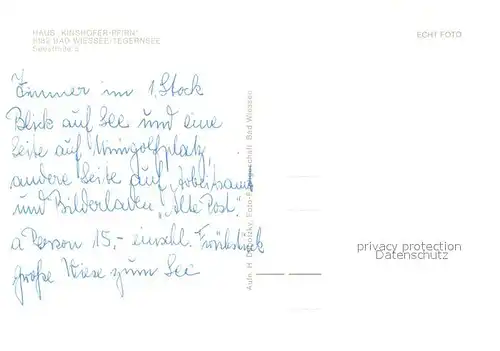 HAUS "KINSHOFER-PFIRN"
8182 BAD WIESSEE/TEGERNSEE
ECHT FOTO
Zimmer im 1. Stock
Blick auf See und eine
Seite auf Minigolfplatz,
andere Seite auf Arbeitsamt
und Bilderladen "Alte Post".
a Person 15,- einschl. Frühstück
große Wiese zum See
privacy protection
Datenschutz